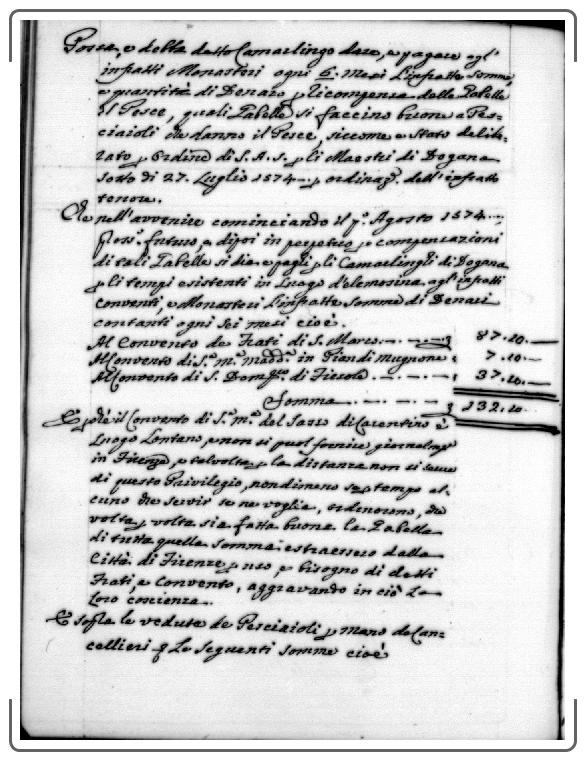 Possa, e debba detto Camarlingo dare, e pagare agl'
infratti Monasteri ogni 6. Mesi l'infratte somme,
e quantità di Denaro p ricompensa delle Tabelle
il Pesce, quali Tabelle si faccino buone a Pes=
ciaioli che danno il Pesce, siccome è stato delibe=
rato p ordine di S. A. S. p li Maestri di Dogana
sotto di 27. Luglio 1574 p ordinaz. dell'infratto
tenore.
Che nell'avvenire cominciando il p.º Agosto 1574
pross.º futuro, e dipoi in perpetuo p compensazioni
di tali Tabelle si dia e paghi p li Camarlinghi di Dogana
p li tempi esistenti in Luogo d'elemosina, agl'infratti
Conventi, e Monasteri l'infratte somme di Denari
contanti ogni sei mesi cioè.
Al Convento de Frati di S. Marco 87.10.
Al Convento di S.ª M.ª Madd.ª in Pian di Mugnone 7.10.
Al Convento di S. Dom.co di Fiesole 37.10.
Somma 132.10.
E p che il Convento di S.ª M.ª del Sasso di Casentino è
Luogo Lontano, e non si puol fornire giornalmte
in Firenze, e talvolta p la distanza non si serve
di questo Privilegio, nondimeno se p tempo al=
cuno che servir se ne voglia, ordinorono, che
volta p volta sia fatta buona la Tabella
di tutta quella somma estraessero dalla
Città di Firenze p uso, e bisogno di detti
Frati, e Convento, aggravando in ciò La
Loro coscienza.
E sopra le vedute de Pesciaioli p mano de Can=
cellieri Le Seguenti somme cioè